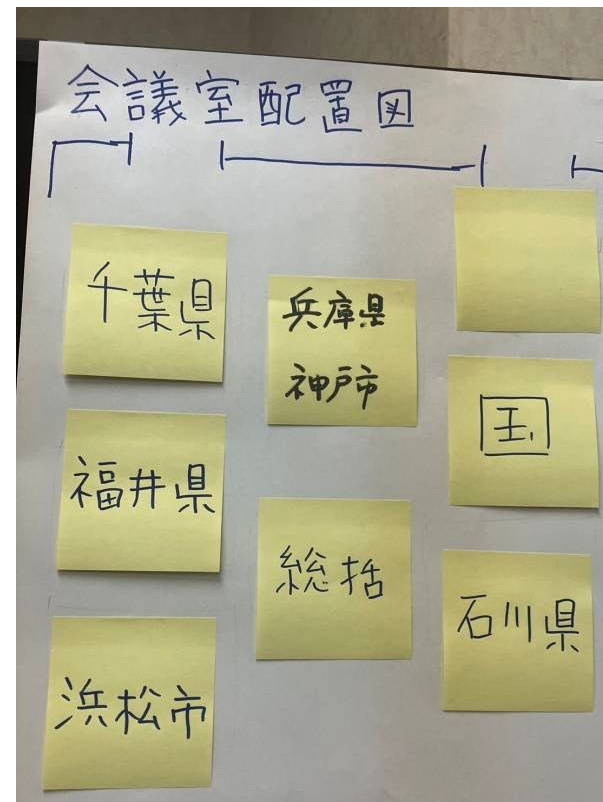 会議室配置図
千葉県
福井県
浜松市
兵庫県
神戸市
総括
国
石川県